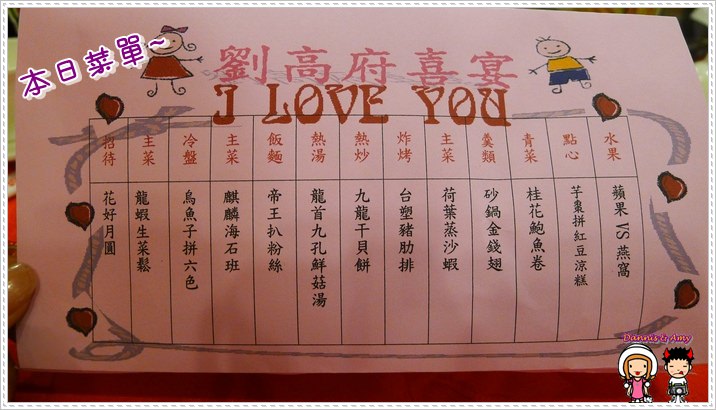 本日菜單~
劉高府喜宴
I LOVE YOU
招待 主菜 冷盤 主菜 飯麵 熱湯 熱炒 炸烤 主菜 羹類 青菜 點心 水果
花好月圓
龍蝦生菜鬆
烏魚子拼六色
麒麟海石班
帝王扒粉絲
龍首九孔鮮菇湯
九龍干貝餅
台塑豬肋排
荷葉蒸沙蝦
砂鍋金錢翅
桂花鮑魚卷
芋棗拼紅豆涼糕
蘋果VS燕窩
Dannis & Amy